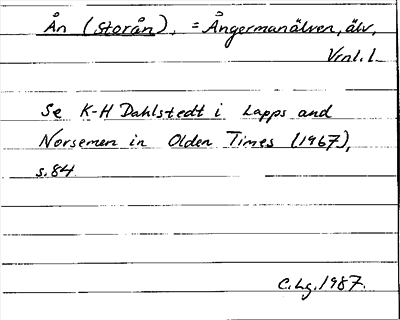 Ån (Storån), = Ångermanälven, älv,
Vrml.l.
Se K-H Dahlstedt i Lapps and
Norsemen in Olden Times (1967),
s.84
C.Lg.1987.